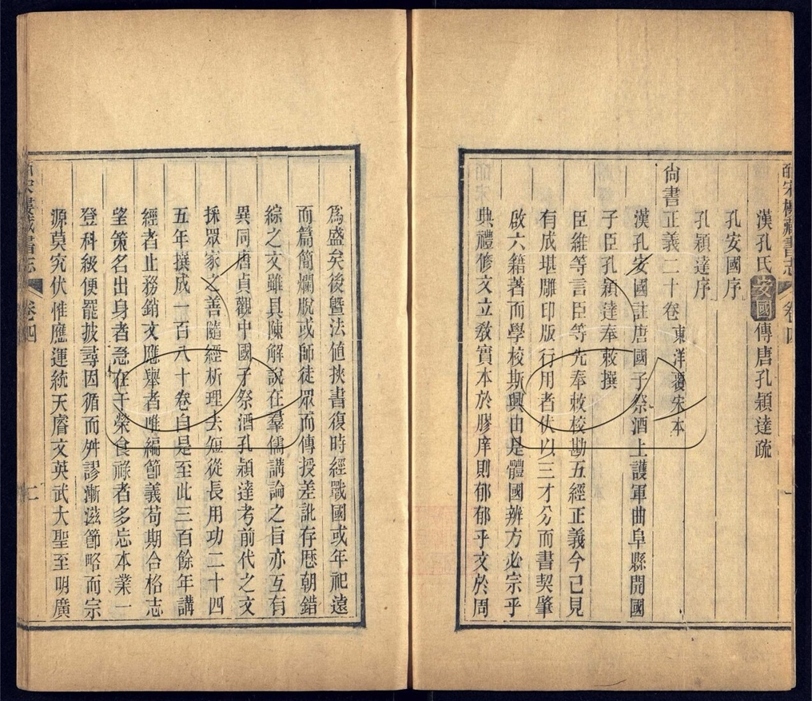 皕宋樓藏書志 卷四
漢孔氏安國傳唐孔穎達疏
孔安國序
孔穎達序
尙書正義二十卷 東洋覆宋本
漢孔安國註唐國子祭酒上護軍曲阜縣開國
子臣孔穎達奉敕撰
臣維等言臣等先奉敕校勘五經正義今已見
有成堪雕印版行用者伏以三才分而書契肇
啟六籍著而學校斯興由是體國辨方必宗乎
典禮修文立敎實本於膠庠則郁郁乎文於周
爲盛矣後曁法値挾書復時經戰國或年祀遠
而篇簡爛脫或師徒眾而傳授差訛存歷朝錯
綜之文雖具陳解說在羣儒講論之旨亦互有
異同唐貞觀中國子祭酒孔穎達考前代之文
採眾家之善隨經析理去短從長用功二十四
五年撰成一百八十卷自是至此三百餘年講
經者止務銷文應舉者唯編節義苟期合格志
望策名出身者急在干榮食祿者多忘本業一
登科級便罷披尋因循而舛謬漸滋節略而宗
源莫究伏惟應運統天睿文英武大聖至明廣
皕宋樓藏書志 卷四